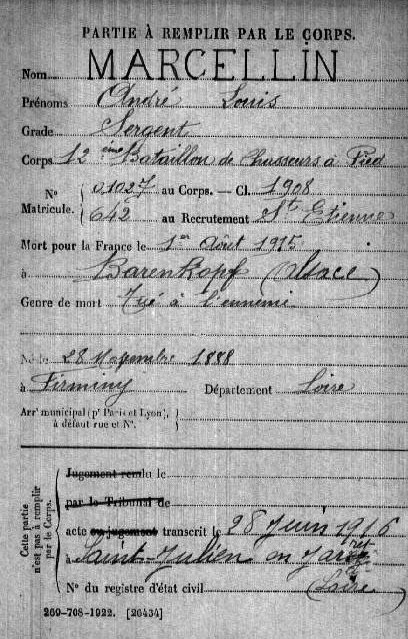 PARTIE À REMPLIR PAR LE CORPS.
Nom MARCELLIN
Prénoms André Louis
Grade Sergent
Corps 12ème Bataillon de Chasseurs à Pied
N° 01027 au Corps. — Cl. 1908
Matricule. 642 au Recrutement St Etienne
Mort pour la France le 1er Août 1915
à Barenkopf (Alsace)
Genre de mort Tué à l'ennemi
Né le 28 Novembre 1888
à Firminy Département Loire
Arrt municipal (pr Paris et Lyon), à défaut rue et N°.
Cette partie n'est pas à remplir par le Corps.
Jugement rendu le
par le Tribunal de
acte ou jugement transcrit le 28 Juin 1916
à Saint-Julien en Jarret
N° du registre d'état civil (Loire)
269-708-1922. [26434]